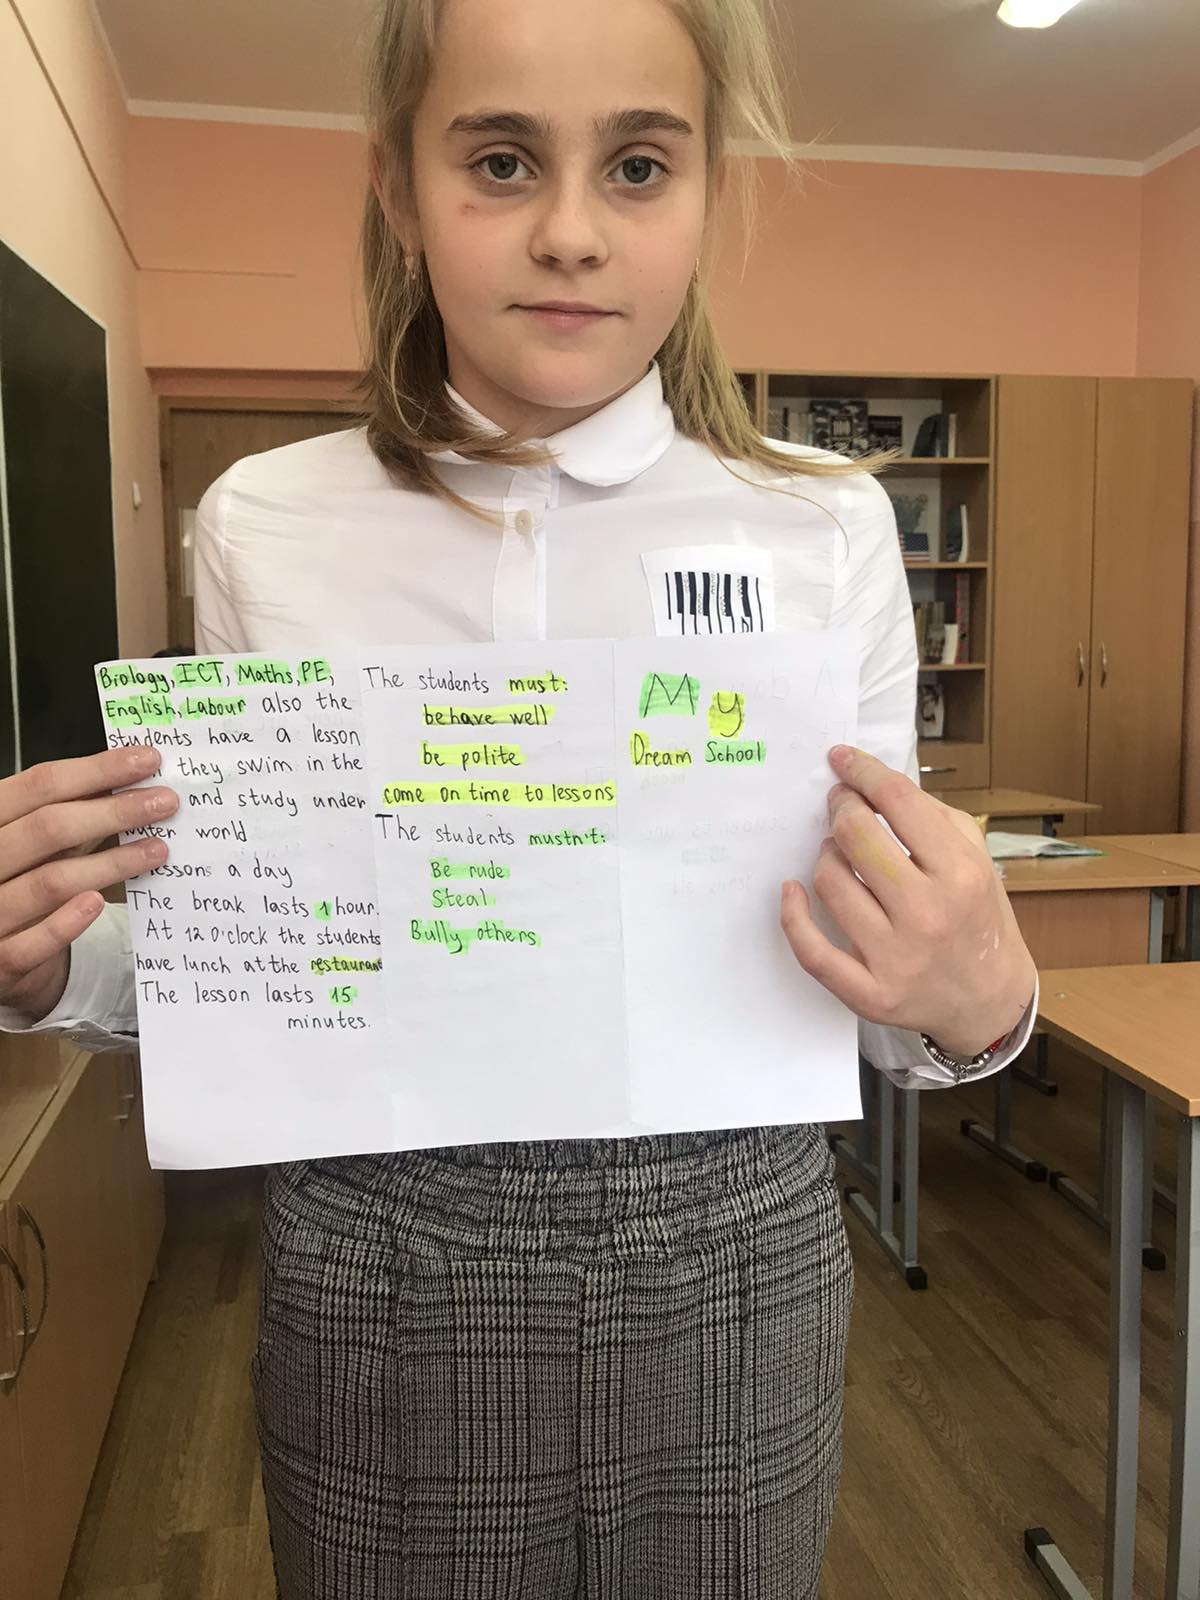 Biology, ICT, Maths, PE,
English, Labour also the
students have a lesson
they swim in the
and study under
water world
lessons a day
The break lasts 1 hour.
At 12 O'clock the students
have lunch at the restaurant
The lesson lasts 15
minutes.
The students must:
behave well
be polite
come on time to lessons
The students mustn't:
Be rude
Steal
Bully others
My
Dream School